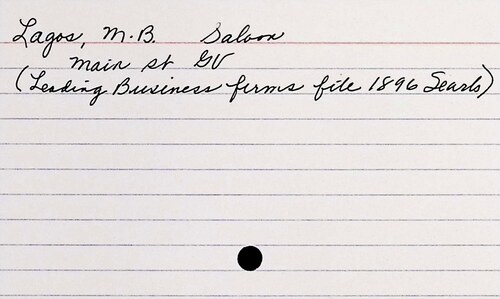 Lagos, M.B. Saloon
Main st GV
(Leading Business firms file 1896 Searls)